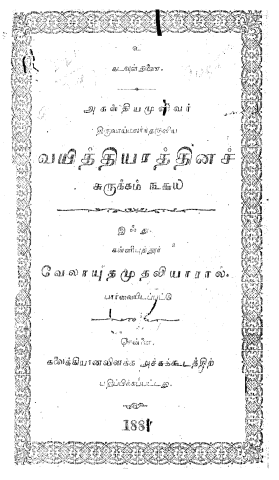 உ
கடவுள்துணை.
அகஸ்தியமுனிவர்
திருவாய்மலர்ந்தருளிய
வயித்தியரத்தினச்
சுருக்கம் ௩௬௰
இஃது
வேலாயுதமுதலியாரால்.
பார்வையிடப்பட்டு
சென்னை
கலைக்கியானவிளக்க அச்சுக்கூடத்திற்
பதிப்பிக்கப்பட்டது.
1881